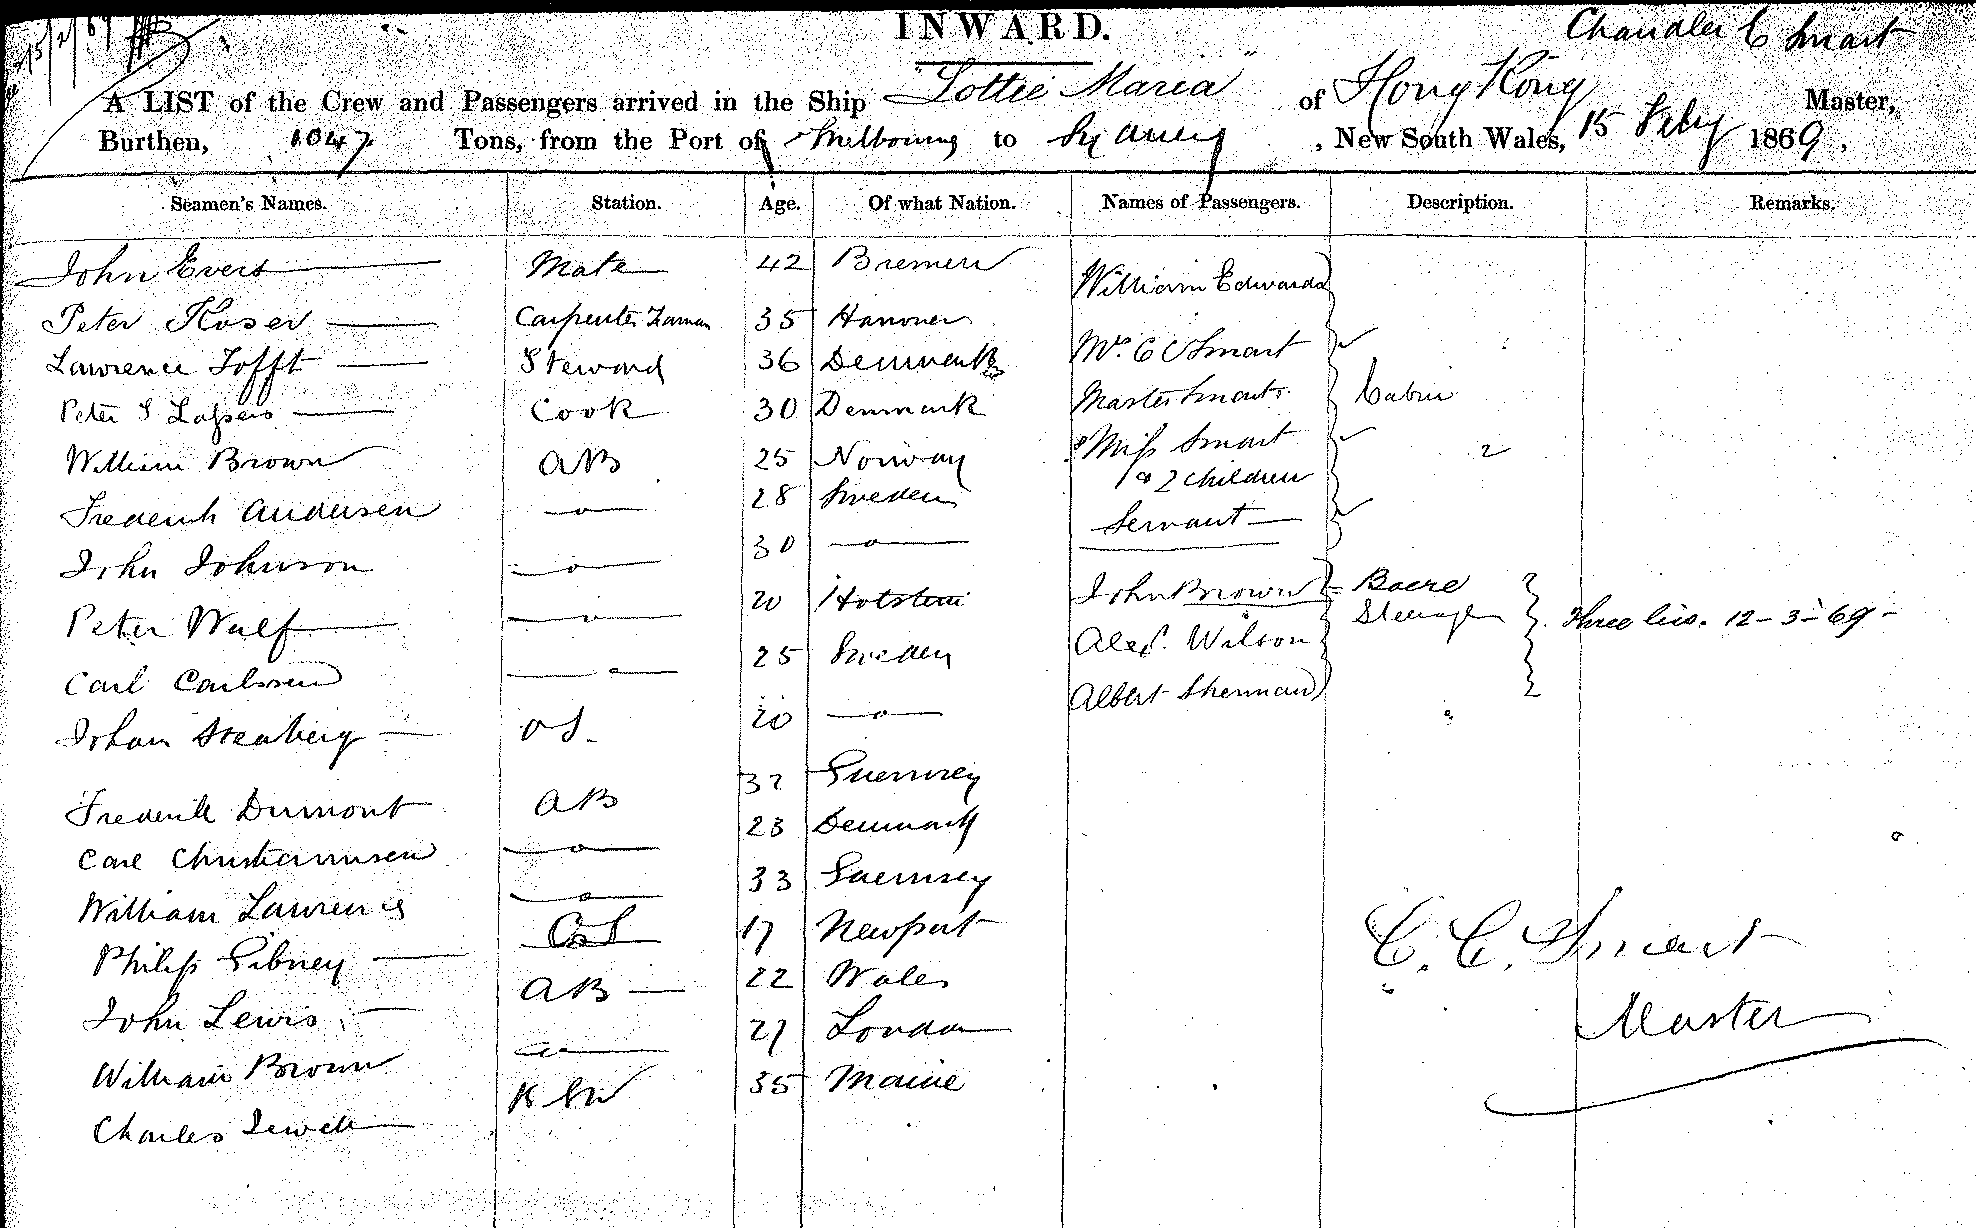 INWARD.
Chandler C Smart
A LIST of the Crew and Passengers arrived in the Ship "Lottie Maria" of Hong Kong Master,
Burthen, 1047 Tons, from the Port of Melbourne to Sydney, New South Wales, 15 Feby 1869.
Seamen's Names. Station. Age. Of what Nation. Names of Passengers. Description. Remarks.
John Evers Mate 42 Bremen William Edwards
Peter Koser Carpenter 35 Hanover
Lawrence Tofft Steward 36 Denmark Mrs. C C Smart
Peter S Cook 30 Denmark Master Smart Cabin
William Brown AB 25 Norway Miss Smart 2
& 2 children
Frederick Andersen —o— 28 Sweden Servant
John Johnson —o— 30 —o—
Peter Wulf —o— 20 Holstein John Brown Steerage Three lies. 12-3-69-
Carl Carlssen —o— 25 Sweden Alex. Wilson
Johan Stenberg OS 20 —o— Albert Sherman
Frederick Dumont AB 32 Guernsey
Carl Christiannsen —o— 23 Denmark
William Lawrence —o— 33 Guernsey
Philip Gibney OS 17 Newport
John Lewis AB 22 Wales
William Brown —o— 27 London
Charles Jewell 35 Maine
C. C. Smart
Master